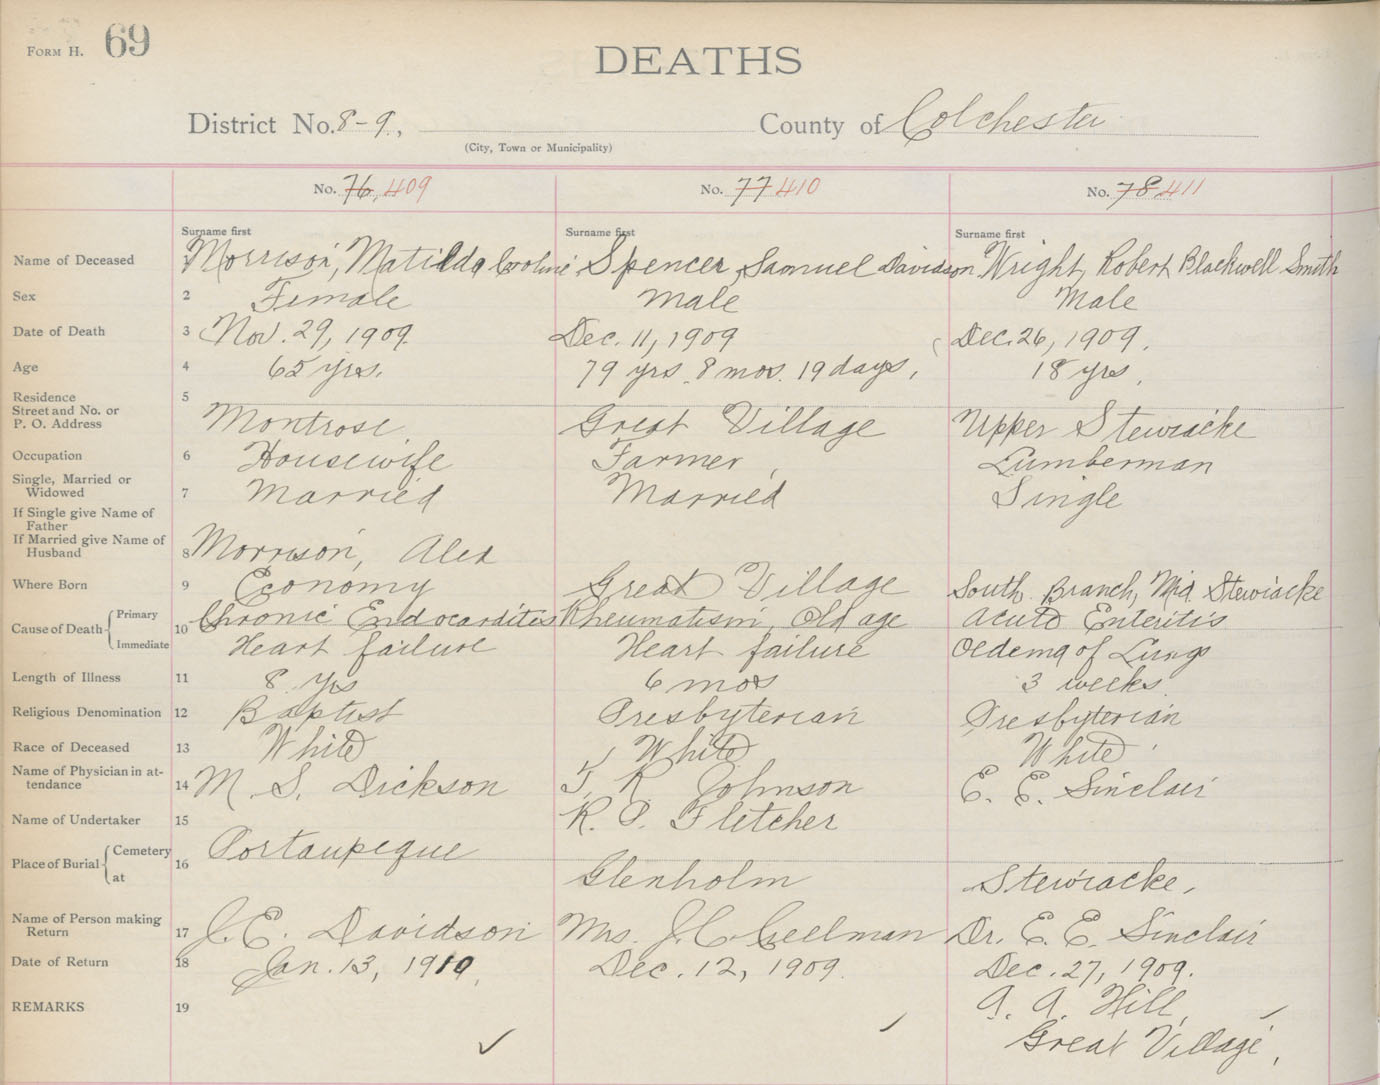 FORM H. 69
DEATHS
District No. 8-9, County of Colchester
(City, Town or Municipality)
No. 76, 409 No. 77 410 No. 78, 411
Surname first Surname first Surname first
Name of Deceased 1 Morrison, Matilda Caroline Spencer, Samuel Davidson Wright, Robert Blackwell Smith
Sex 2 Female Male Male
Date of Death 3 Nov. 29, 1909 Dec. 11, 1909 Dec. 26, 1909.
Age 4 65 yrs. 79 yrs. 8 mos. 19 days. 18 yrs.
Residence 5
Street and No. or
P. O. Address Montrose Great Village Upper Stewiacke
Occupation 6 Housewife Farmer, Lumberman
Single, Married or
Widowed 7 Married Married Single
If Single give Name of
Father
If Married give Name of
Husband 8 Morrison, Alex
Where Born 9 Economy Great Village South Branch, Mid. Stewiacke
Cause of Death 10 Primary Chronic Endocarditis Rheumatism, Old age Acute Enteritis
Immediate Heart failure Heart failure Oedema of Lungs
Length of Illness 11 8 yrs 6 mos 3 weeks.
Religious Denomination 12 Baptist Presbyterian Presbyterian
Race of Deceased 13 White White White
Name of Physician in at-
tendance 14 M. S. Dickson T. R. Johnson E. E. Sinclair
Name of Undertaker 15 R. P. Fletcher
Place of Burial 16 Cemetery Portaupeque
at Glenholm Stewiacke,
Name of Person making
Return 17 J. E. Davidson Mrs. J. C. Dr. E. E. Sinclair
Date of Return 18 Jan. 13, 1910, Dec. 12, 1909. Dec. 27, 1909.
REMARKS 19 A. A. Hill,
Great Village,